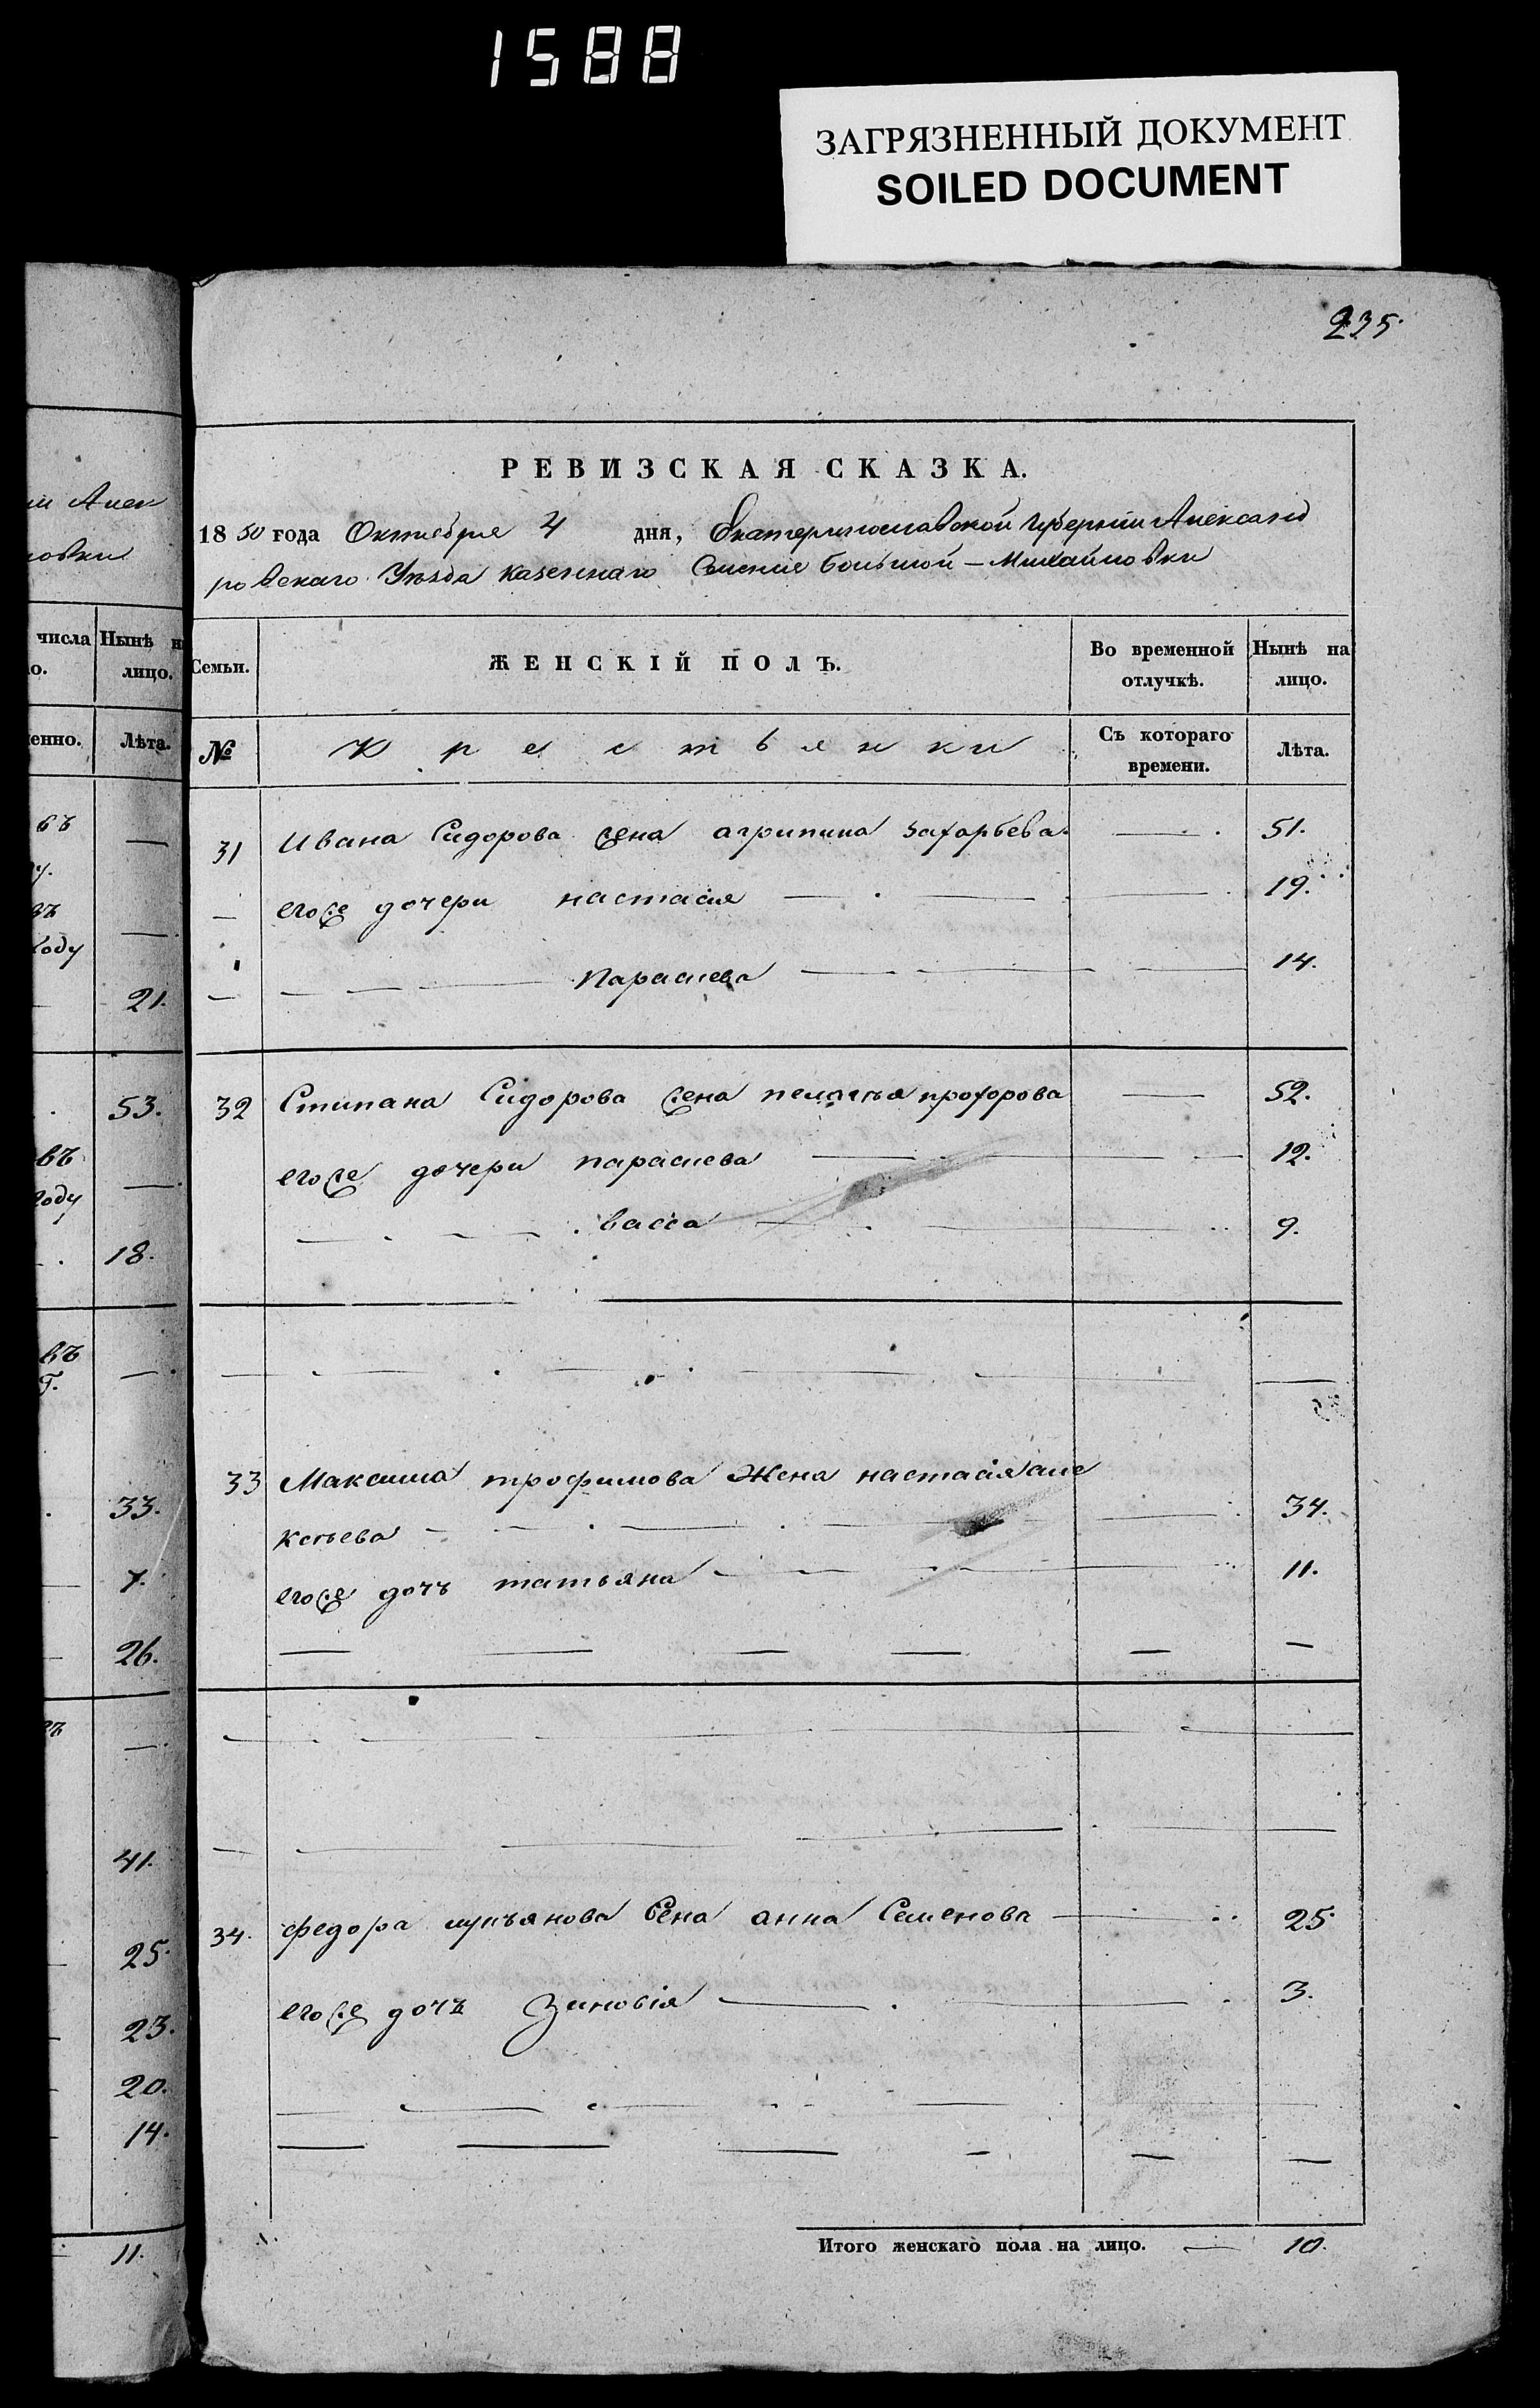 1588
ЗАГРЯЗНЕННЫЙ ДОКУМЕНТ
SOILED DOCUMENT
235.
РЕВИЗСКАЯ СКАЗКА.
1850 года Октября 4 дня, Екатеринославской Губернии Александ
ровскаго Уѣзда казеннаго Селения Большой – Михайловки
числа Нынѣ
лицо.
Лѣта.
Семьи.
ЖЕНСКІЙ ПОЛЪ.
Во временной отлучкѣ.
Нынѣ на лицо.
№
Крестьянки
Съ котораго времени.
Лѣта.
31 Ивана Сидорова жена агрипина захарьева. 51.
его же дочери настасія 19.
Параскева 14.
32 Стипана Сидорова жена пелагѣя прохорова 52.
его же дочери параскева 12.
васса 9.
33 Максима трофимова Жена настасія але
ксѣева 34.
его же дочъ татьяна 11.
34. федора лукъянова жена анна Семенова 25.
его же дочъ Зиновія 3.
Итого женскаго пола на лицо. 10.
въ
году
21.
53.
въ
году
18.
въ
Г.
33.
7.
26.
41.
25.
23.
20.
14.
11.